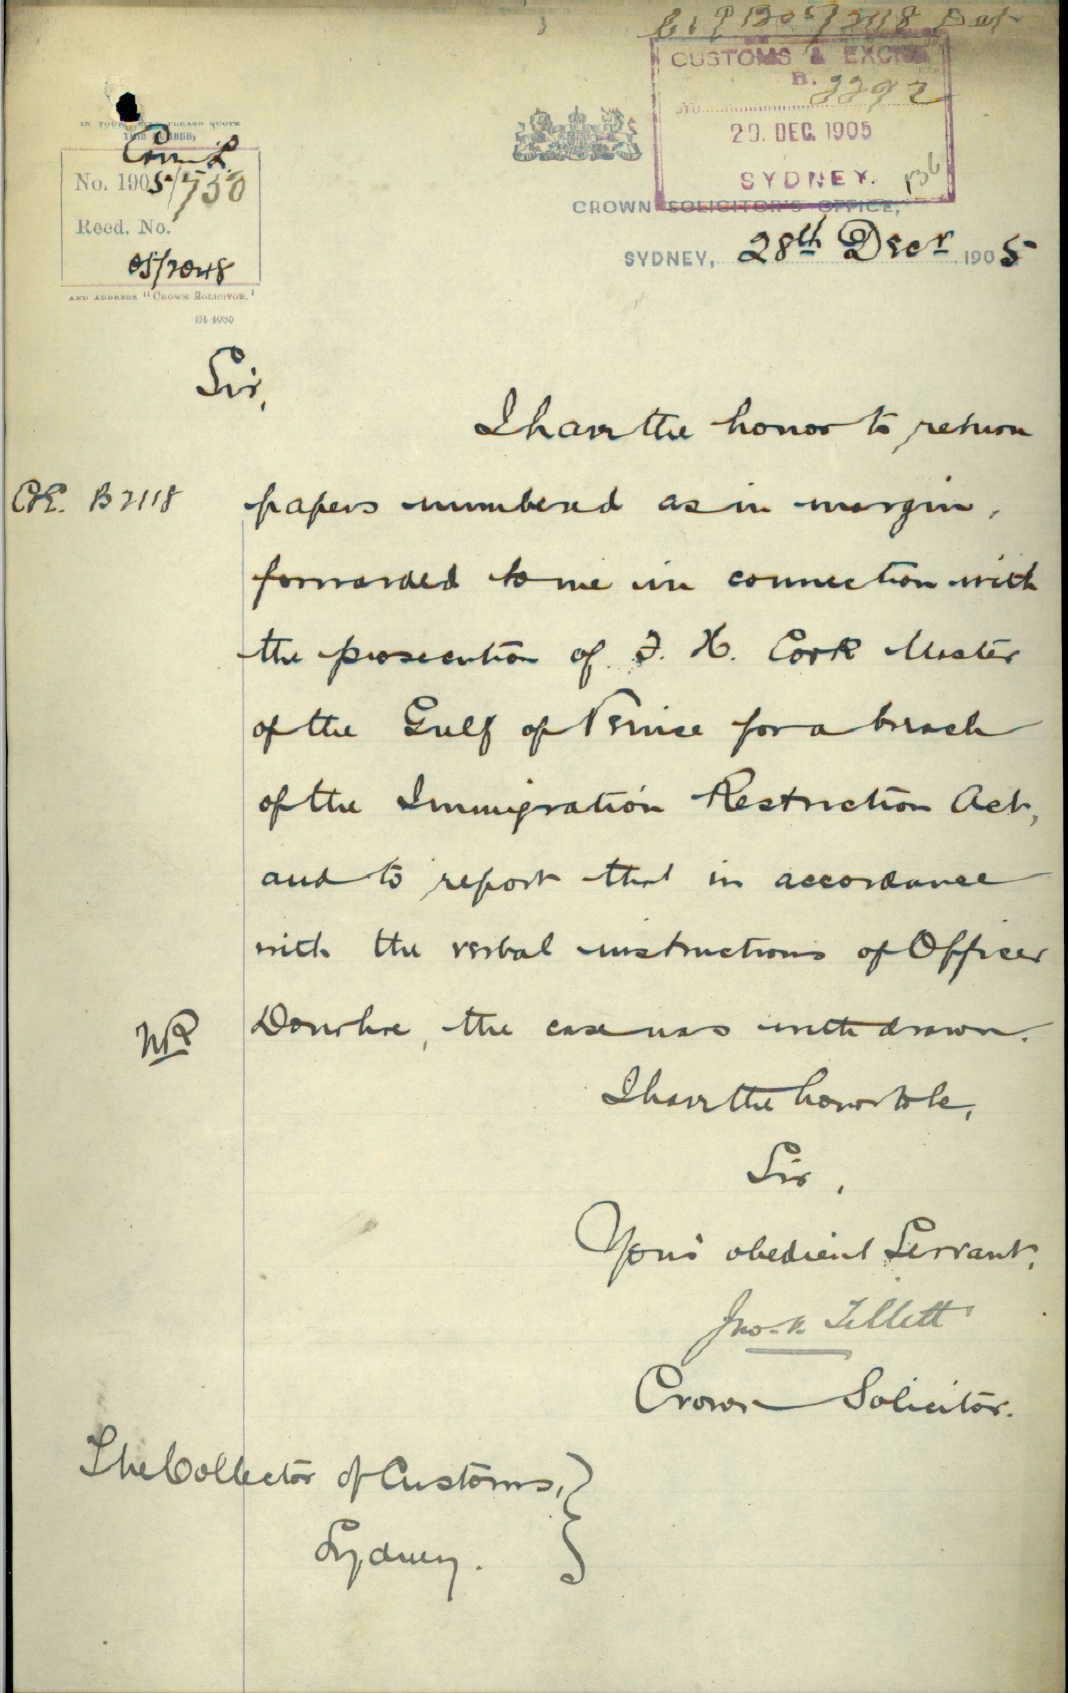 CUSTOMS & EXCISE
B. 2292
No.
29. DEC. 1905
SYDNEY.
136
IN YOUR REPLY PLEASE QUOTE
THIS NUMBER,
No. 1905/750
Recd. No.
05/2048
AND ADDRESS "CROWN SOLICITOR."
CROWN SOLICITOR'S OFFICE,
SYDNEY, 28th Decr 1905
Sir,
I have the honor to return
C&E. B2118
papers numbered as in margin,
forwarded to me in connection with
the prosecution of F. H. Cork Master
of the Gulf of Venice for a breach
of the Immigration Restriction Act,
and to report that in accordance
with the verbal instructions of Officer
Donohoe, the case was withdrawn.
I have the honor to be,
Sir,
Your obedient Servant,
Jno. Tillett
Crown Solicitor.
The Collector of Customs,
Sydney.